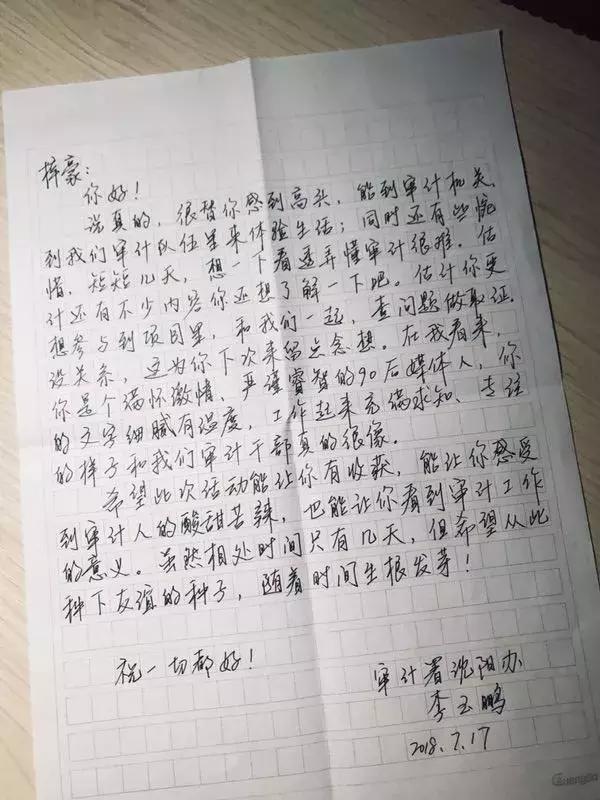 梓豪：
你好！
说真的，很替你感到高兴，能到审计机关，
到我们审计队伍里来体验生活；同时还有些惋
惜，短短几天，想一下看透弄懂审计很难。估
计还有不少内容你还想了解一下吧。估计你更
想参与到项目里，和我们一起，查问题做取证。
没关系，这为你下次来留点念想。在我看来，
你是个满怀激情、严谨睿智的90后媒体人，你
的文字细腻有温度，工作起来充满求知、专注
的样子和我们审计干部真的很像。
希望此次活动能让你有收获，能让你感受
到审计人的酸甜苦辣，也能让你看到审计工作
的意义。虽然相处时间只有几天，但希望从此
种下友谊的种子，随着时间生根发芽！
祝一切都好！
审计署沈阳办
李玉鹏
2018.7.17